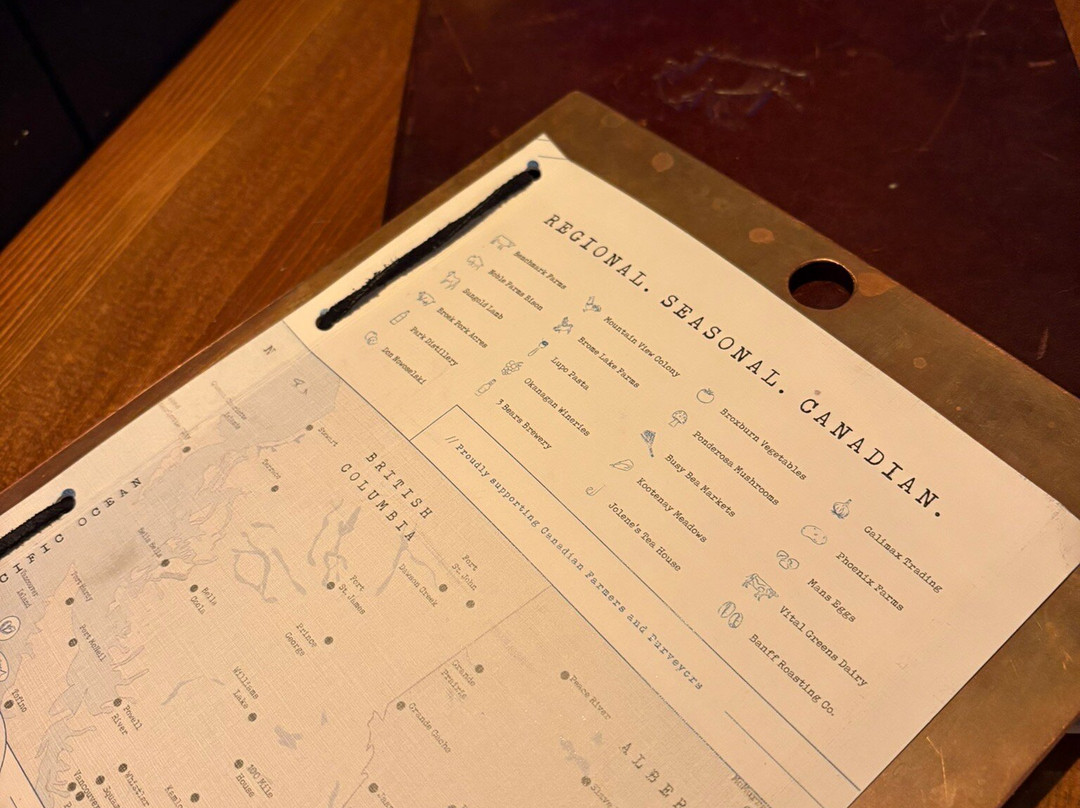 REGIONAL. SEASONAL. CANADIAN.
Benchmark Farms
Noble Farms Bison
Sungold Lamb
Broek Pork Acres
Park Distillery
Don Nowoselski
Mountain View Colony
Brome Lake Farms
Lupo Pasta
Okanagan Wineries
3 Bears Brewery
Broxburn Vegetables
Ponderosa Mushrooms
Busy Bea Markets
Kootenay Meadows
Jolene's Tea House
Galimax Trading
Phoenix Farms
Mans Eggs
Vital Greens Dairy
Banff Roasting Co.
// Proudly supporting Canadian Farmers and Purveyors
N
BRITISH
COLUMBIA
Stewart
Terrace
OCEAN
Bella Bella
Bella
Coola
Vancouver
Island
Port Hardy
Port McNeill
Tofino
Powell
River
Whistler
Vancouver
Prince
George
Williams
Lake
100 Mile
House
Fort
St. James
Dawson Creek
Fort
St. John
Grande
Prairie
Grande Cache
Peace River
ALBER